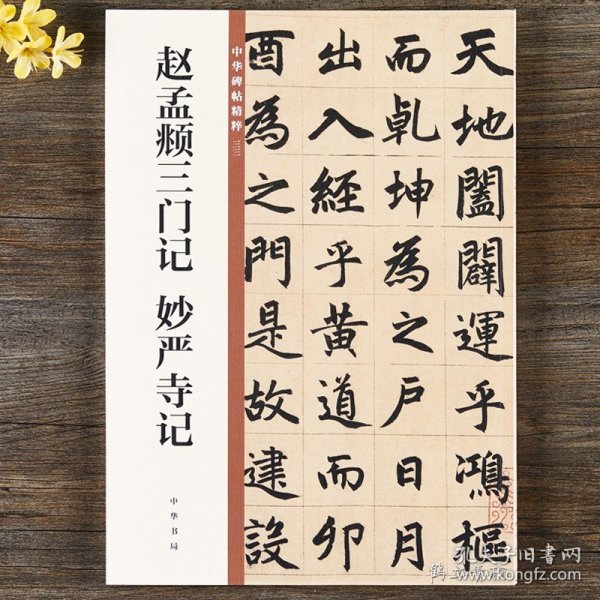 赵孟頫三门记 妙严寺记
中华书局
中华碑帖精粹 三三
天地闔闢運乎鴻樞
而乹坤為之戶日月
出入經乎黃道而卯
酉為之門是故建設
孔夫子旧書网
www.kongfz.com